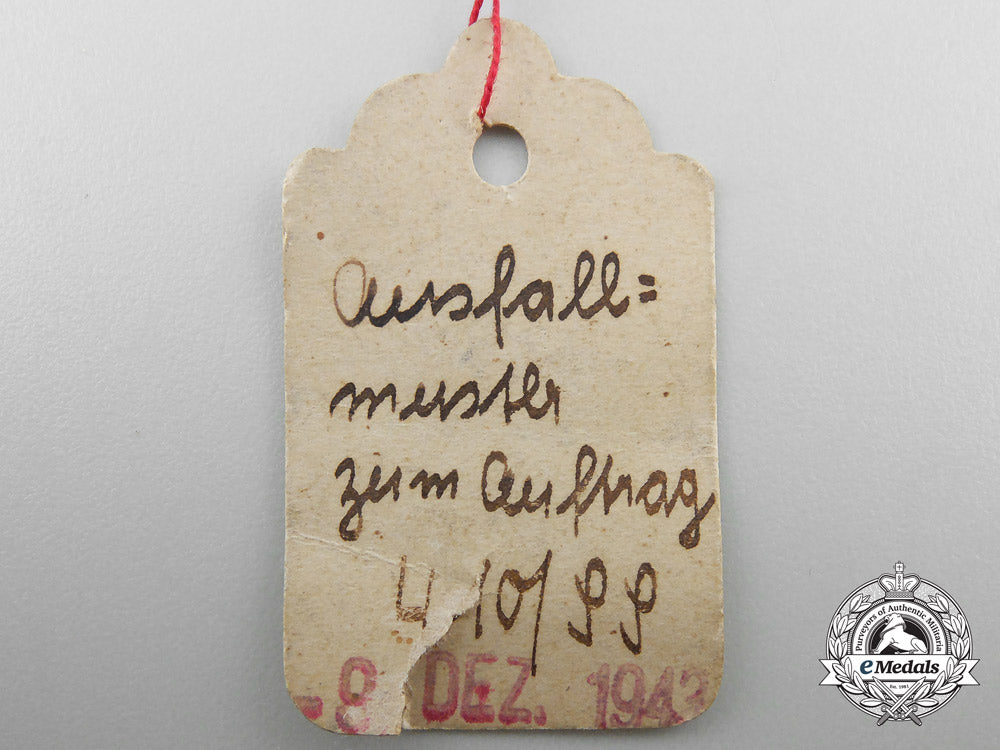 Ausfall=
muster
zum Auftrag
410/99
-9. DEZ. 1943
Purveyors of Authentic Militaria
eMedals
Est. 1981